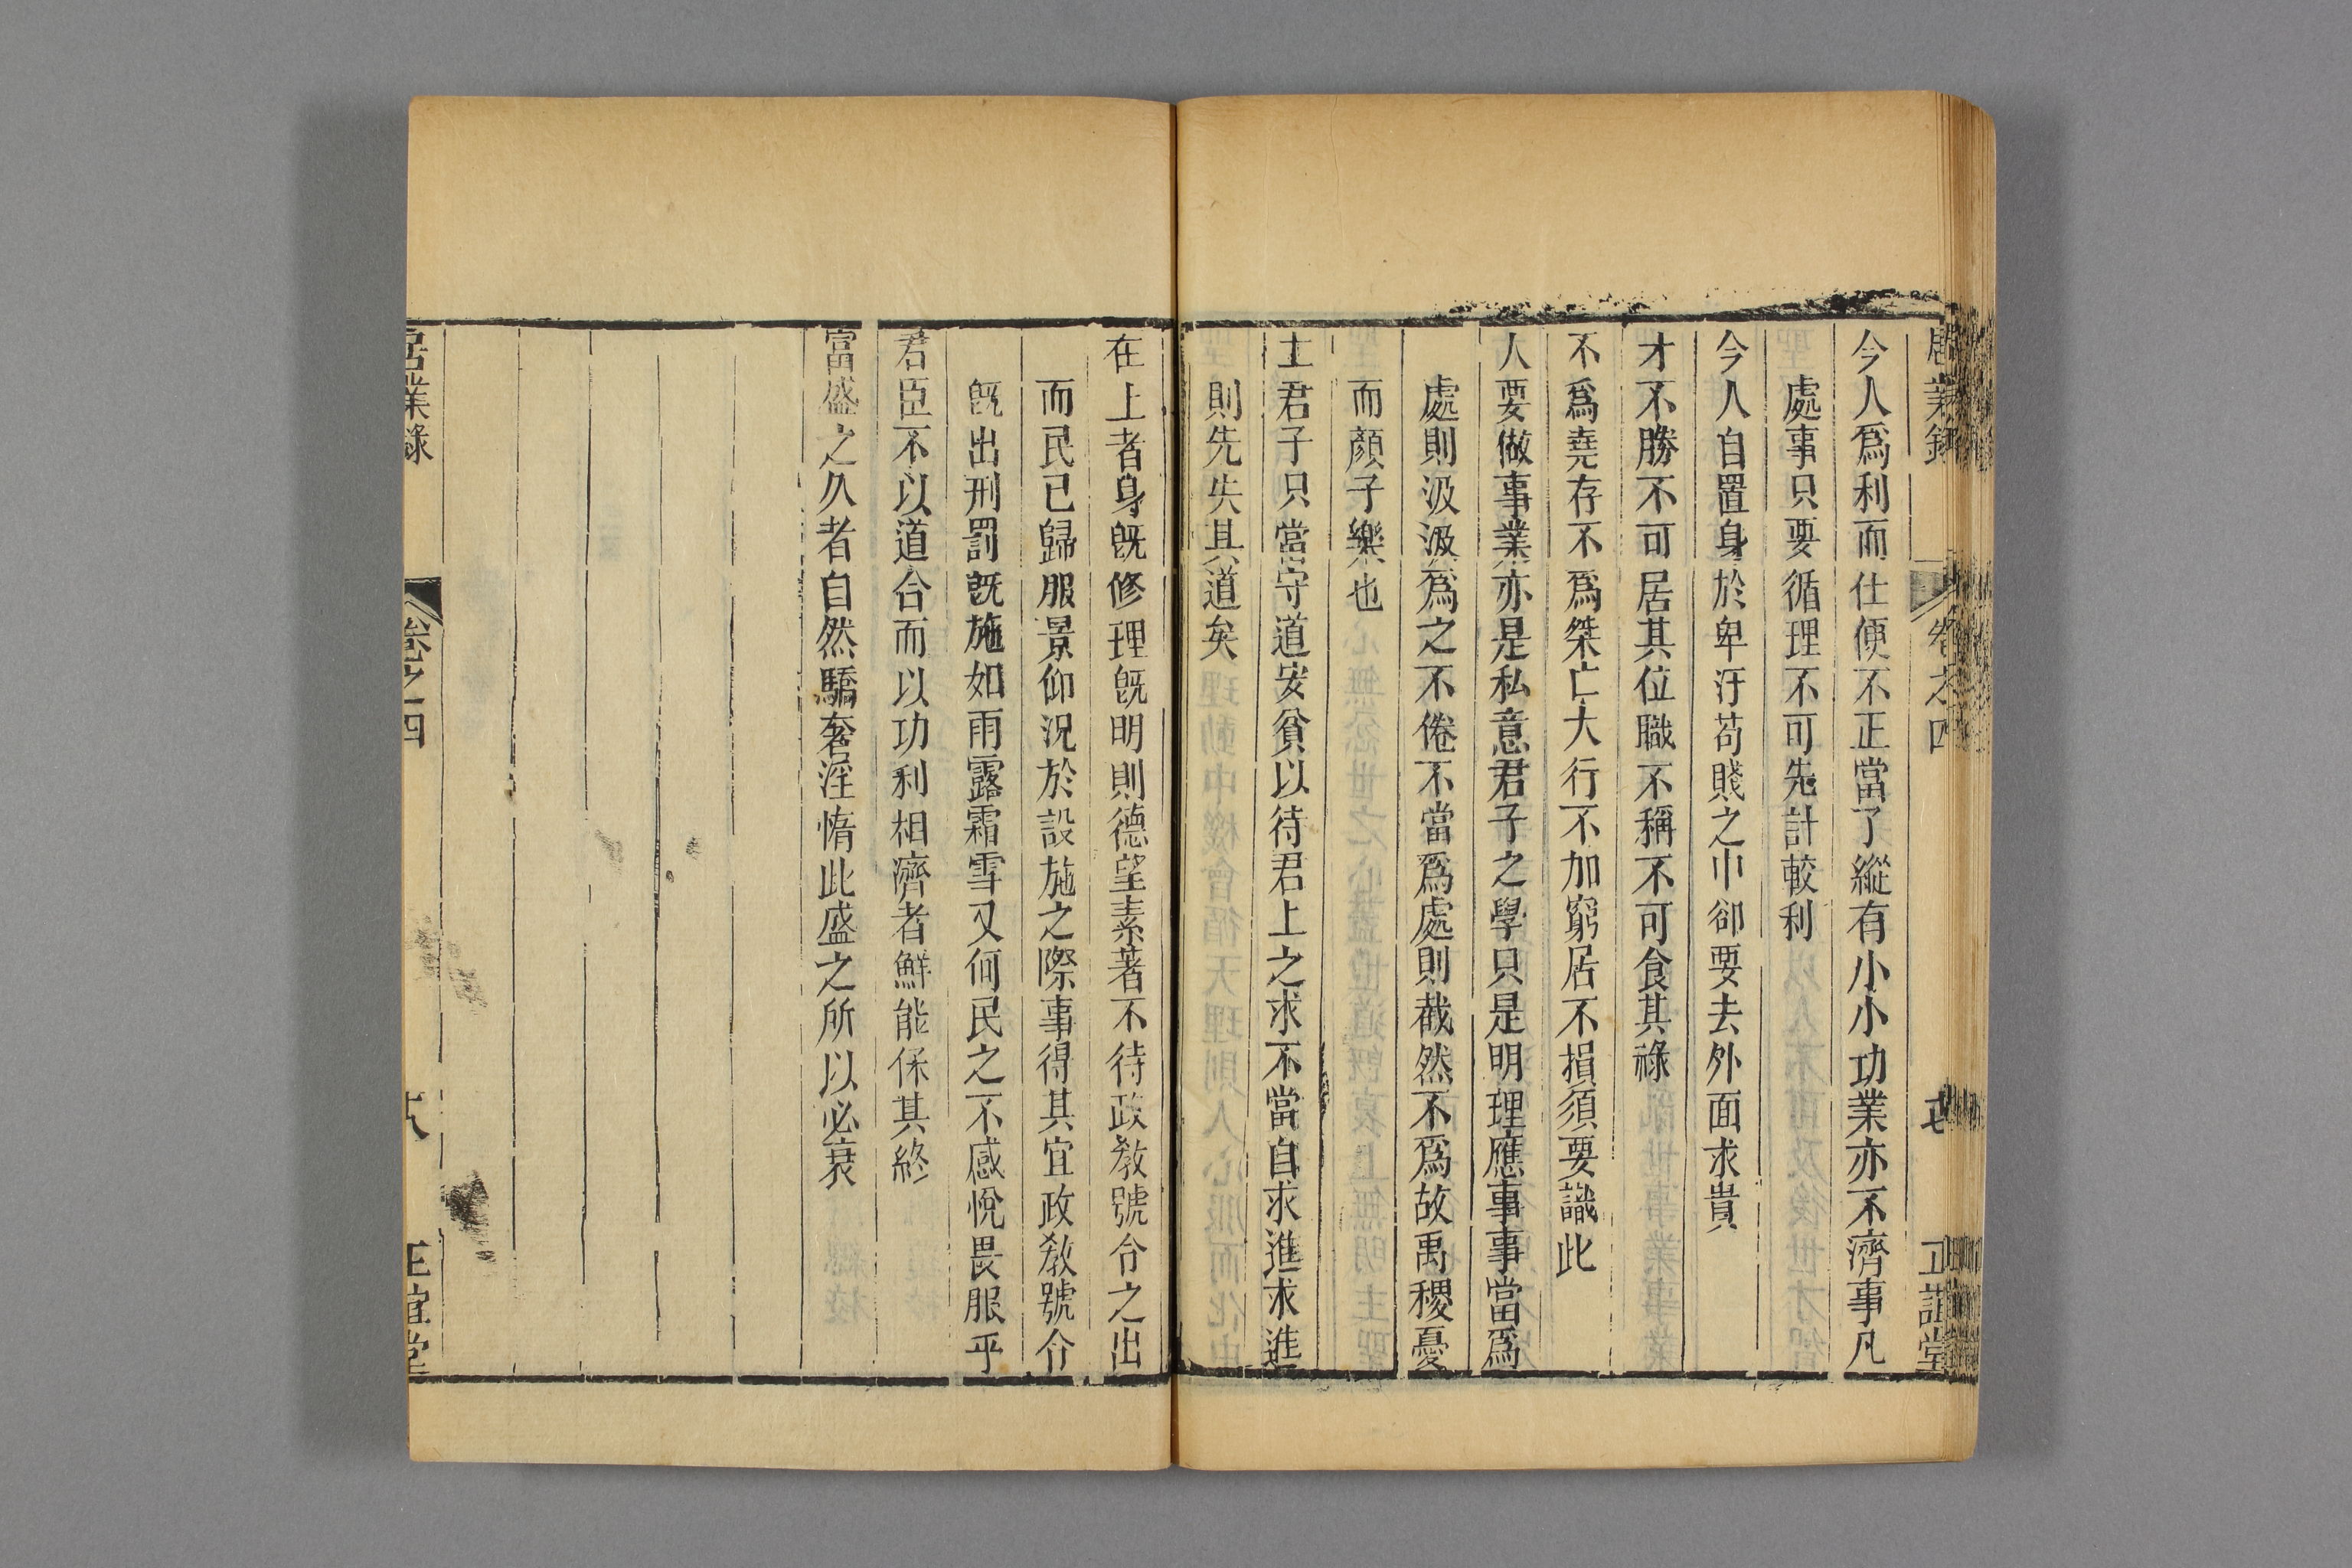 居業錄 卷之四 十七 正誼堂
今人爲利而仕便不正當了縱有小小功業亦不濟事凡
處事只要循理不可先計較利
今人自置身於卑汙苟賤之中卻要去外面求貴
才不勝不可居其位職不稱不可食其祿
不爲堯存不爲桀亡大行不加窮居不損須要識此
人要做事業亦是私意君子之學只是明理應事事當爲
處則汲汲爲之不倦不當爲處則截然不爲故禹稷憂
而顏子樂也
士君子只當守道安貧以待君上之求不當自求進求進
則先失其道矣
在上者身旣修理旣明則德望素著不待政教號令之出
而民已歸服景仰況於設施之際事得其宜政教號令
旣出刑罰旣施如雨露霜雪又何民之不感悅畏服乎
君臣不以道合而以功利相濟者鮮能保其終
富盛之久者自然驕奢淫惰此盛之所以必衰
居業錄 卷之四 十八 正誼堂